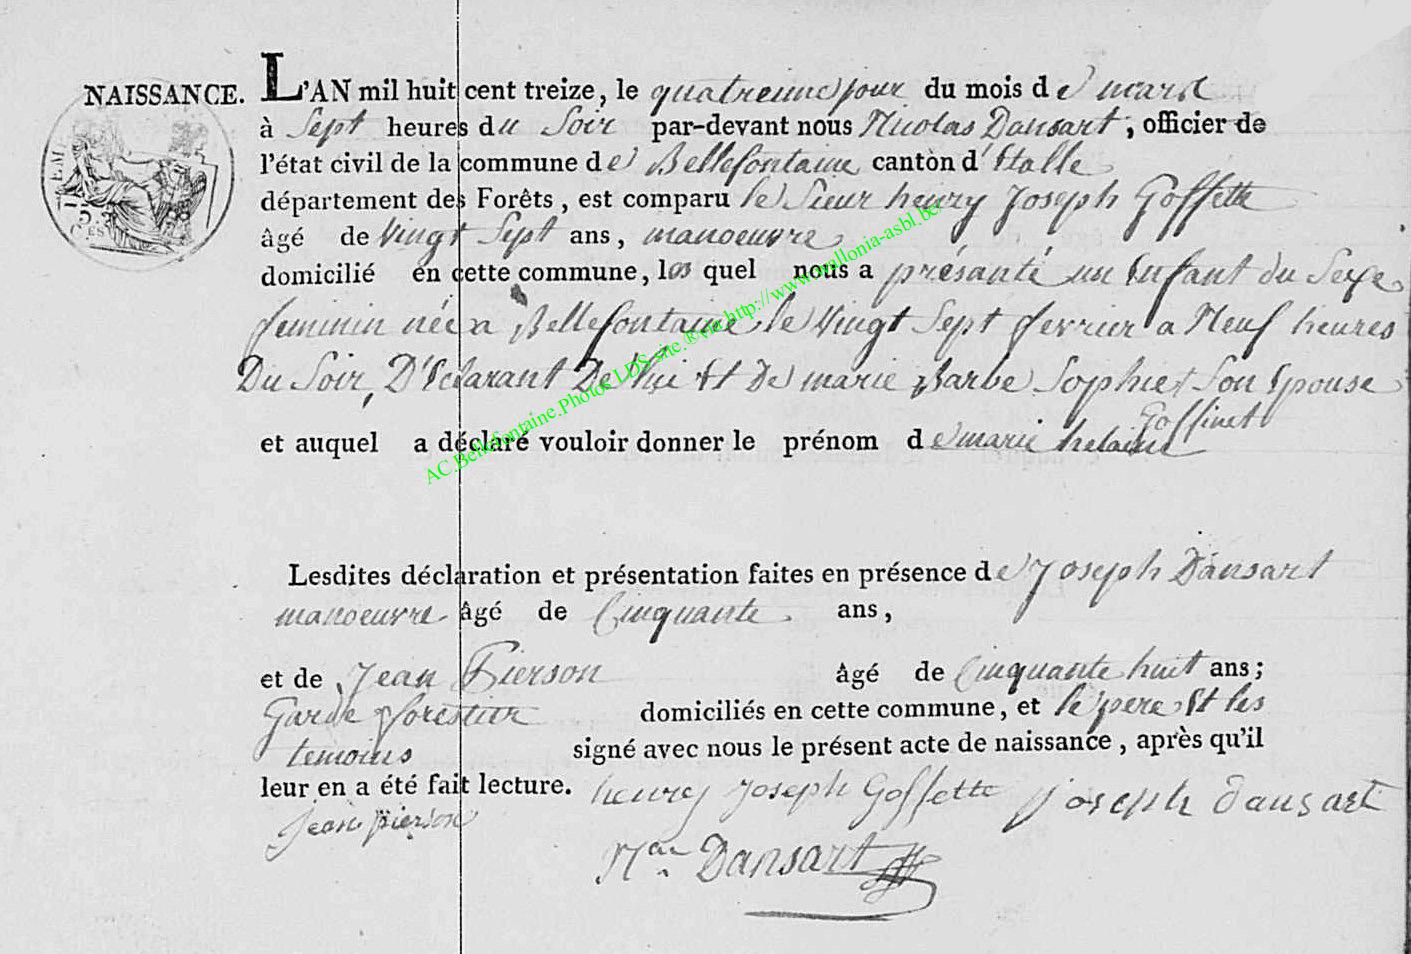 NAISSANCE. L'AN mil huit cent treize, le quatreime jour du mois de mars
à Sept heures du Soir par-devant nous Nicolas Dansart, officier de
l'état civil de la commune de Bellefontaine canton d'Etalle
département des Forêts, est comparu le Sieur henry Joseph Goffette
âgé de Vingt Sept ans, manoeuvre
domicilié en cette commune, le quel nous a présanté un Enfant du Sexe
feminin née a Bellefontaine le Vingt Sept fevrier a Neuf heures
Du Soir, D'Eclarant De lui Et De marie Barbe Sophie Son Epouse
Goffinet
et auquel a déclaré vouloir donner le prénom de marie helaine
Lesdites déclaration et présentation faites en présence de Joseph Dansart
manoeuvre âgé de Cinquante ans,
et de Jean Pierson âgé de Cinquante huit ans;
Garde forestier domiciliés en cette commune, et le pere Et les
temoins signé avec nous le présent acte de naissance, après qu'il
leur en a été fait lecture. henry Joseph Goffette joseph dansart
jean pierson
Nas Dansart
AC.Bellefontaine.Photos LDS-site.®via http://www.wallonia-asbl.be/